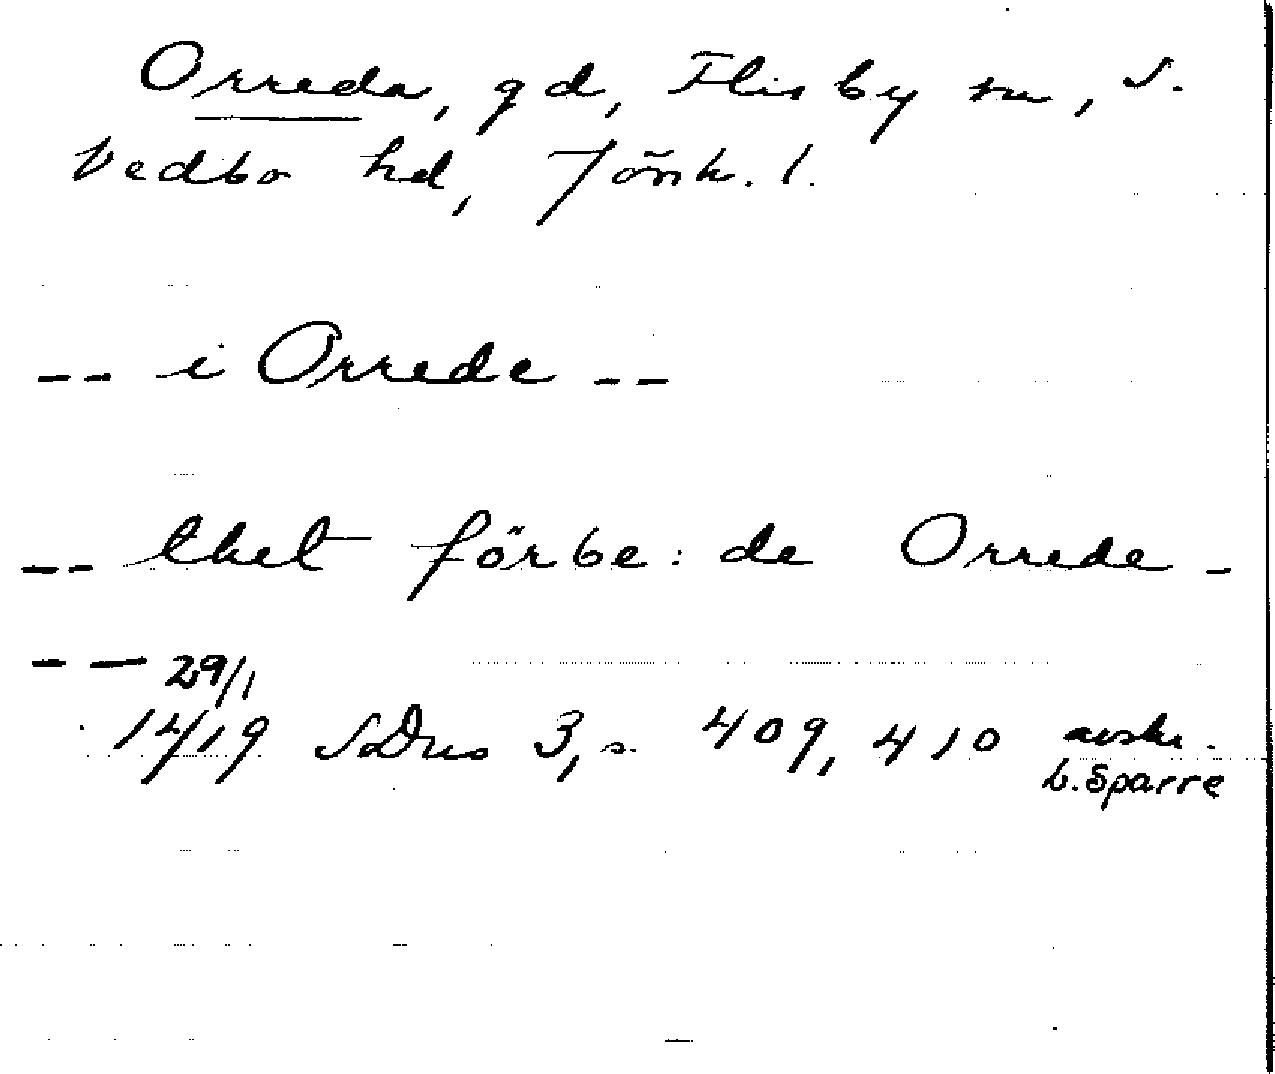 Orreda, gd, Flisby sn, S.
Vedbo hd, Jönk. l.
-- i Orrede --
-- thet förbe: de Orrede -
-- 29/1
1419 SDns 3, s. 409, 410 avskr.
L. Sparre